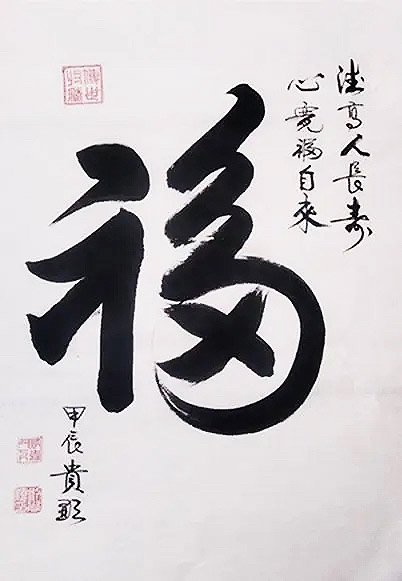 德高人長壽
心寬福自來
福
甲辰貴